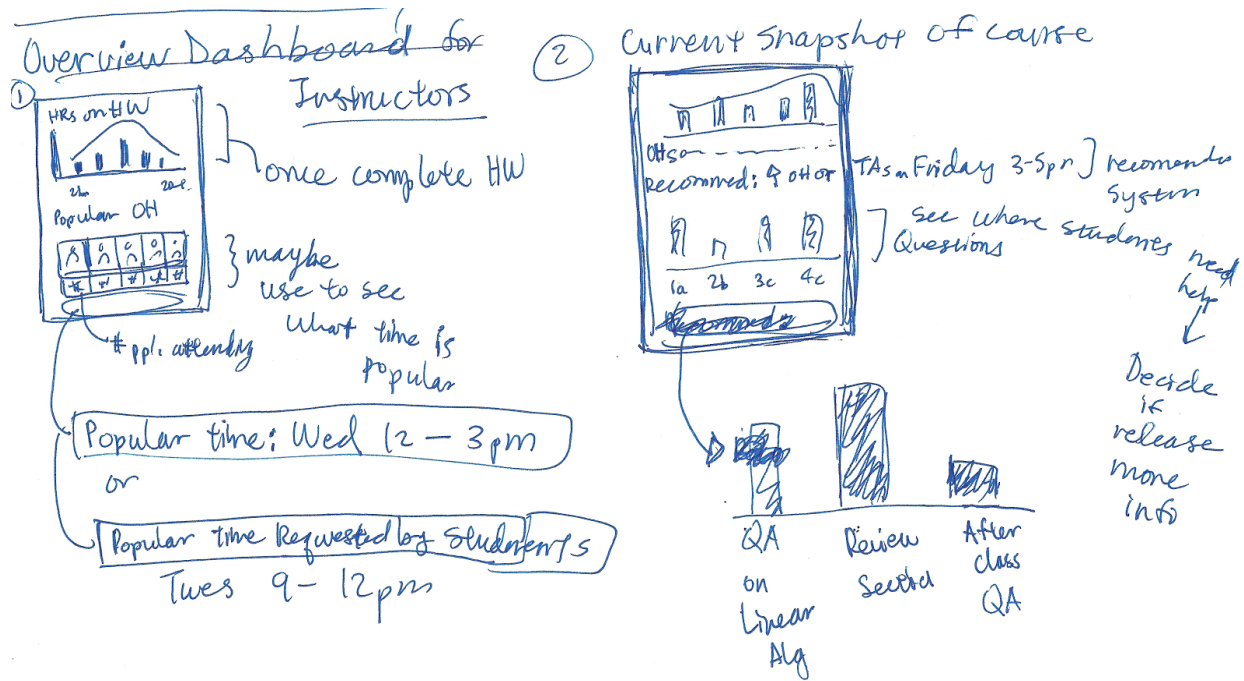 Overview Dashboard for
Instructors
①
HRs on HW
20
Popular OH
# # # # #
once complete HW
} maybe
use to see
what time is
popular
# ppl. attending
Popular time: Wed 12 – 3pm
or
Popular time Requested by Students
Tues 9 – 12pm
② Current Snapshot of course
OHs on
Recommed: ↑ OH or TAs on Friday 3-5pm ] recomender
System
See where students need help
Questions
1a 2b 3c 4c
Decide
if
release
more
info
QA
on
Linear
Alg
Review
After
class
QA